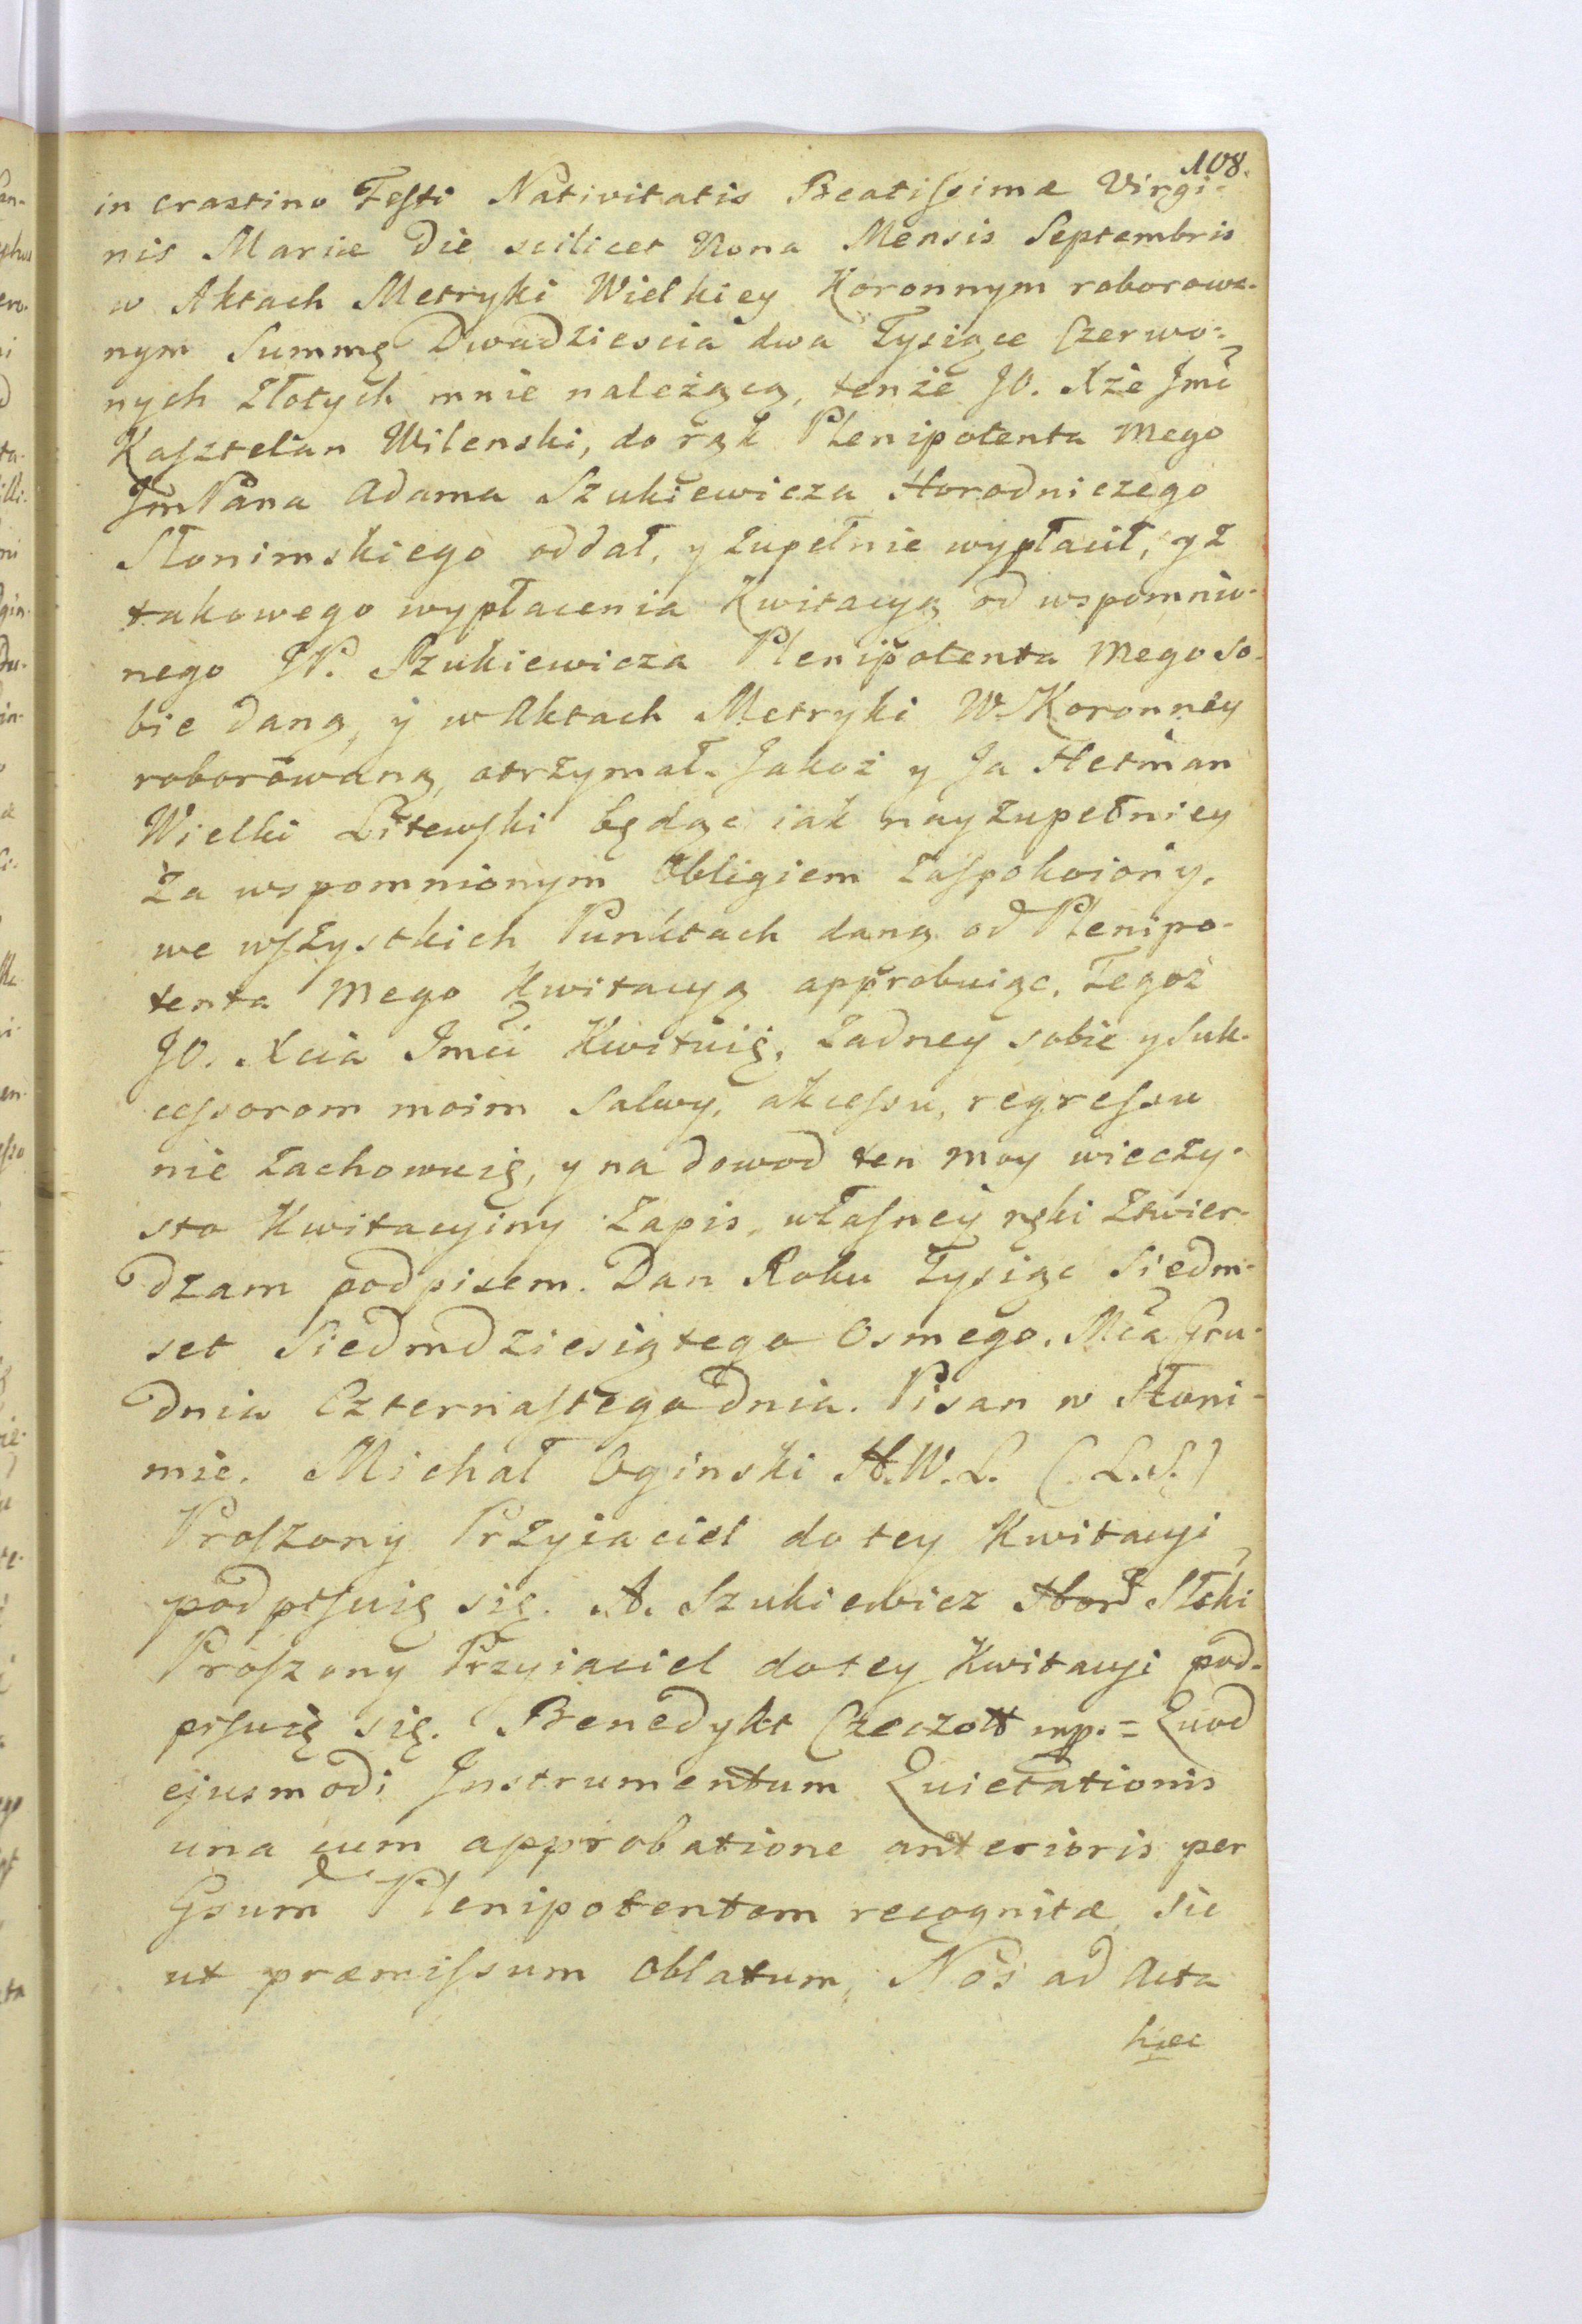 108.
in crastino Festi Nativitatis Beatissimæ Virgi-
nis Mariæ die scilicet Nona Mensis Septembris
w Aktach Metryki Wielkiey Koronnym roborowa-
nym Summę Dwadziescia dwa Tysiące Czerwo-
nych Złotych mnie należącą, tenże JO. Xże Jmć
Kasztelan Wilenski, do rąk Plenipotenta mego
JmPana Adama Szukiewicza Horodniczego
Słonimskiego oddał, y zupełnie wypłacił, y z
takowego wypłacenia Kwitacyą od wspomnio-
nego JP. Szukiewicza Plenipotenta mego so-
bie daną, y w Aktach Metryki W. Koronney
roborowaną, otrzymał. Jakoż y Ja Hetman
Wielki Litewski będąc iak nayzupełniey
za wspomnionym Obligiem zaspokoiony,
we wszystkich Punktach daną od Plenipo-
tenta mego Kwitacyą approbuiąc, Tegoż
JO. Xcia Jmci Kwituię, żadney sobie y Suk-
cessorom moim Salwy, akcessu, regressu
nie zachowuię, y na dowod ten moy wieczy-
sto Kwitacyiny Zapis, własney ręki ztwier-
dzam podpisem. Dan Roku Tysiąc Siedm-
set Siedmdziesiątego Osmego. Mca Gru-
dnia Czternastego dnia. Pisan w Słoni-
mie. Michał Oginski H.W.L. (L.S.)
Proszony Przyiaciel do tey Kwitacyi
podpisuię się. A. Szukiewicz Hord Słski
Proszony Przyiaciel do tey Kwitacyi pod-
pisuię się. Benedykt Czeczott mp. = Quod
ejusmodi Instrumentum Quietationis
una cum approbatione anterioris per
Gsum Plenipotentem recognitæ, sic
ut præmissum oblatum, Nos ad Acta
hæc